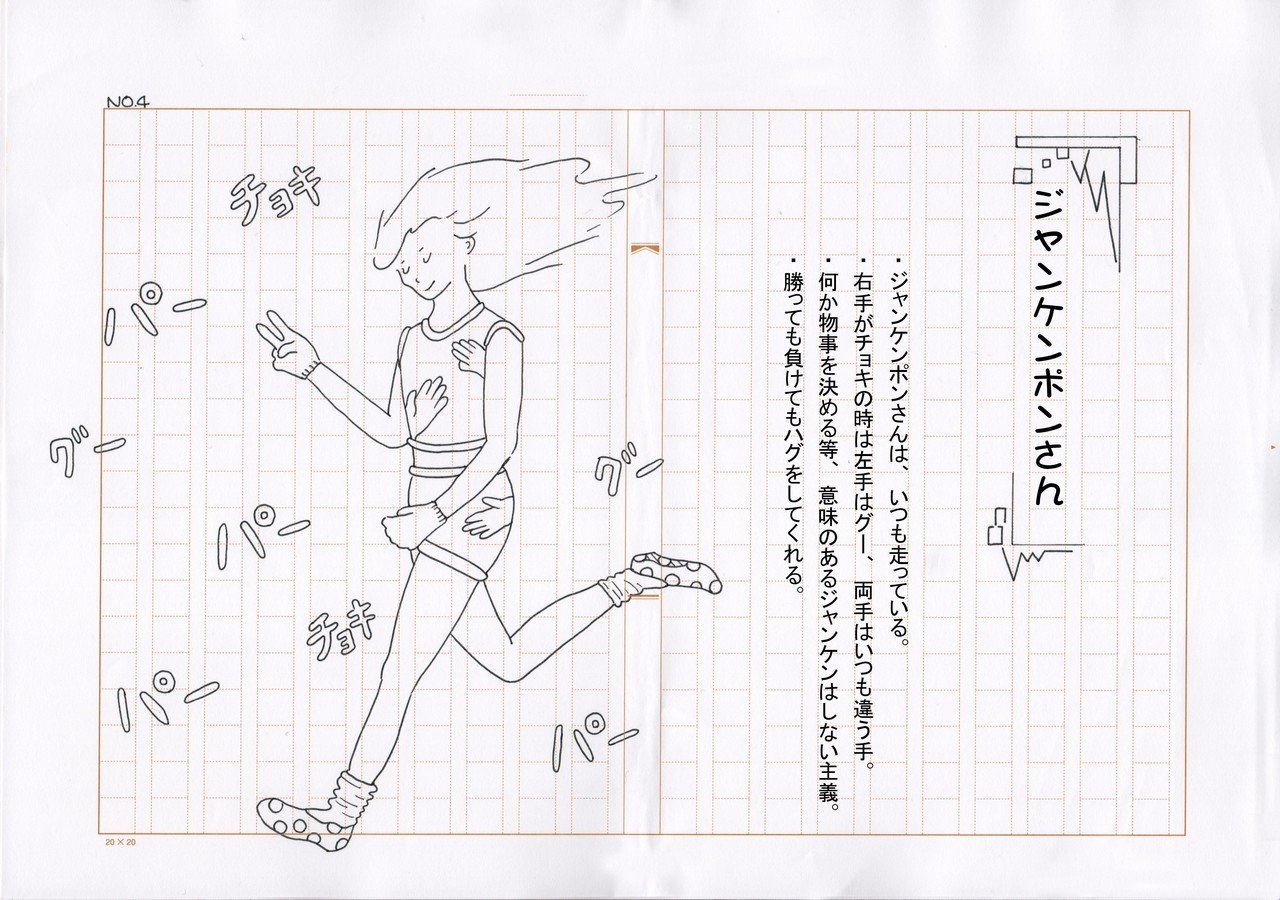 NO.4
ジャンケンポンさん
・ジャンケンポンさんは、いつも走っている。
・右手がチョキの時は左手はグー、両手はいつも違う手。
・何か物事を決める等、意味のあるジャンケンはしない主義。
・勝っても負けてもハグをしてくれる。
チョキ
パー
グー
グー
パー
チョキ
パー
パー
20×20